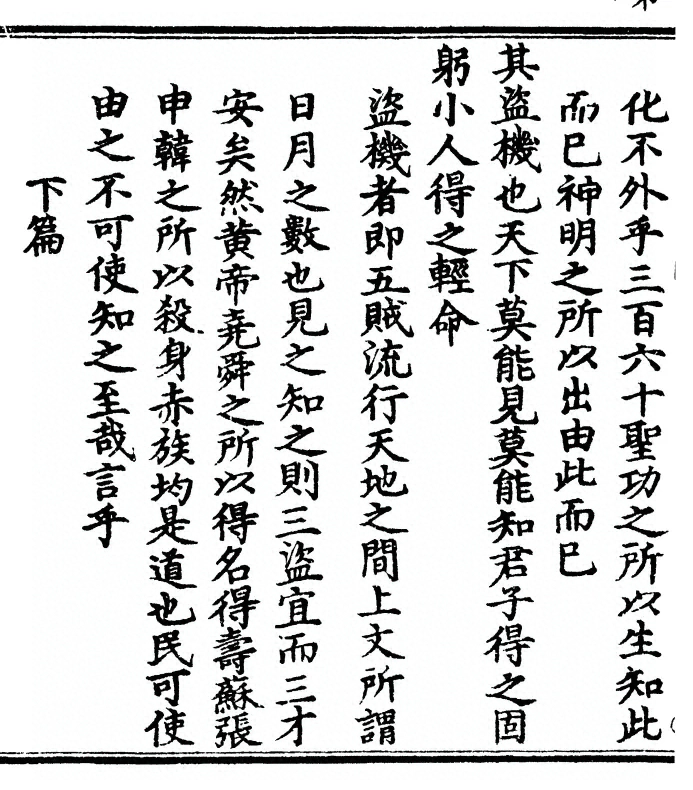 化不外乎三百六十聖功之所以生知此
而已神明之所以出由此而已
其盜機也天下莫能見莫能知君子得之固
躬小人得之輕命
盜機者即五賊流行天地之間上文所謂
日月之數也見之知之則三盜宜而三才
安矣然黄帝堯舜之所以得名得壽蘇張
申韓之所以殺身赤族均是道也民可使
由之不可使知之至哉言乎
下篇